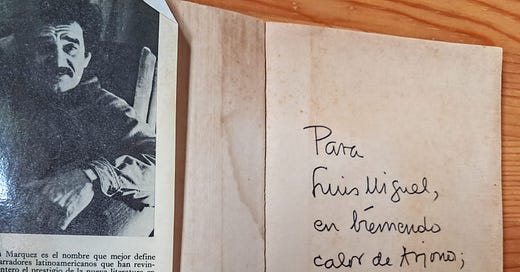 a Marquez es el nombre que mejor define
arradores latinoamericanos que han revin-
entero el prestigio de la nueva literatura en
Para
Luis Miguel,
en tremendo
calor de Arjona;